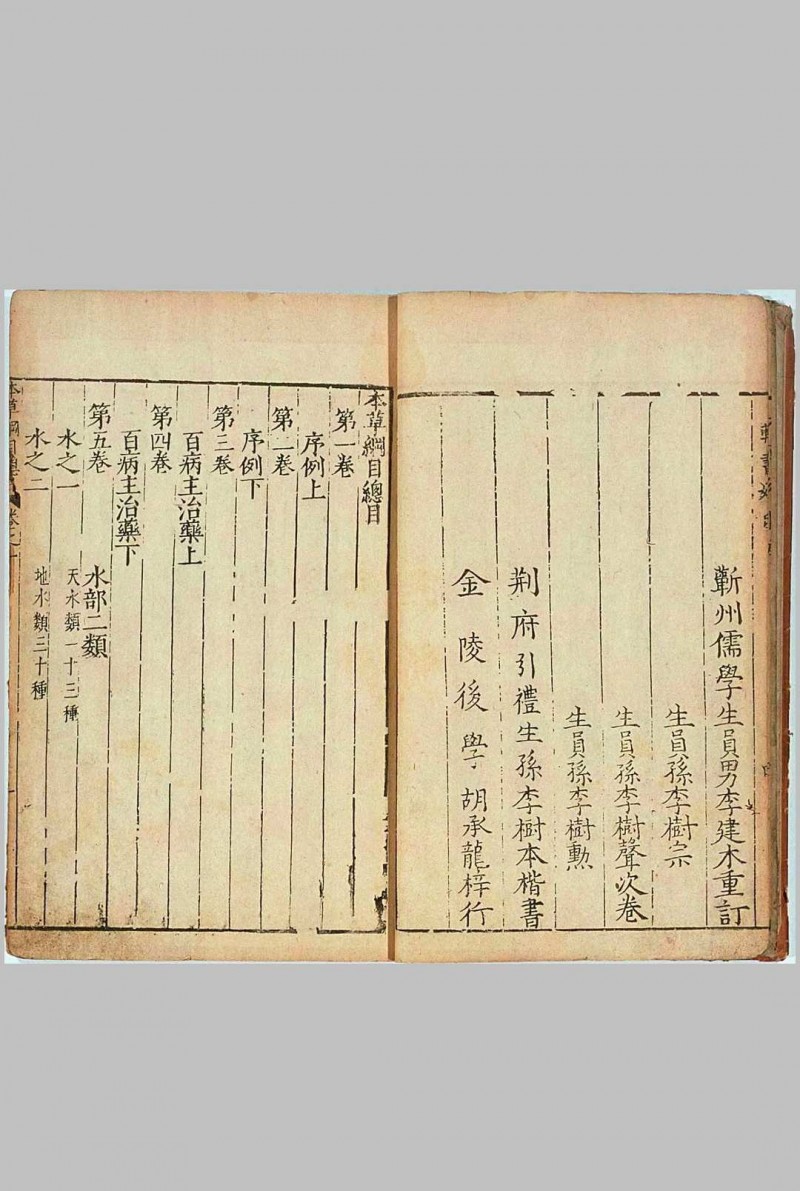 蘄州儒學生員男李建木重訂
生員孫李樹宗
生員孫李樹聲次卷
生員孫李樹勲
荆府引禮生孫李樹本楷書
金陵後學胡承龍梓行
本草綱目總目
第一卷
序例上
第二卷
序例下
第三卷
百病主治藥上
第四卷
百病主治藥下
第五卷 水部二類
水之一 天水類一十三種
水之二 地水類三十種
本草綱目